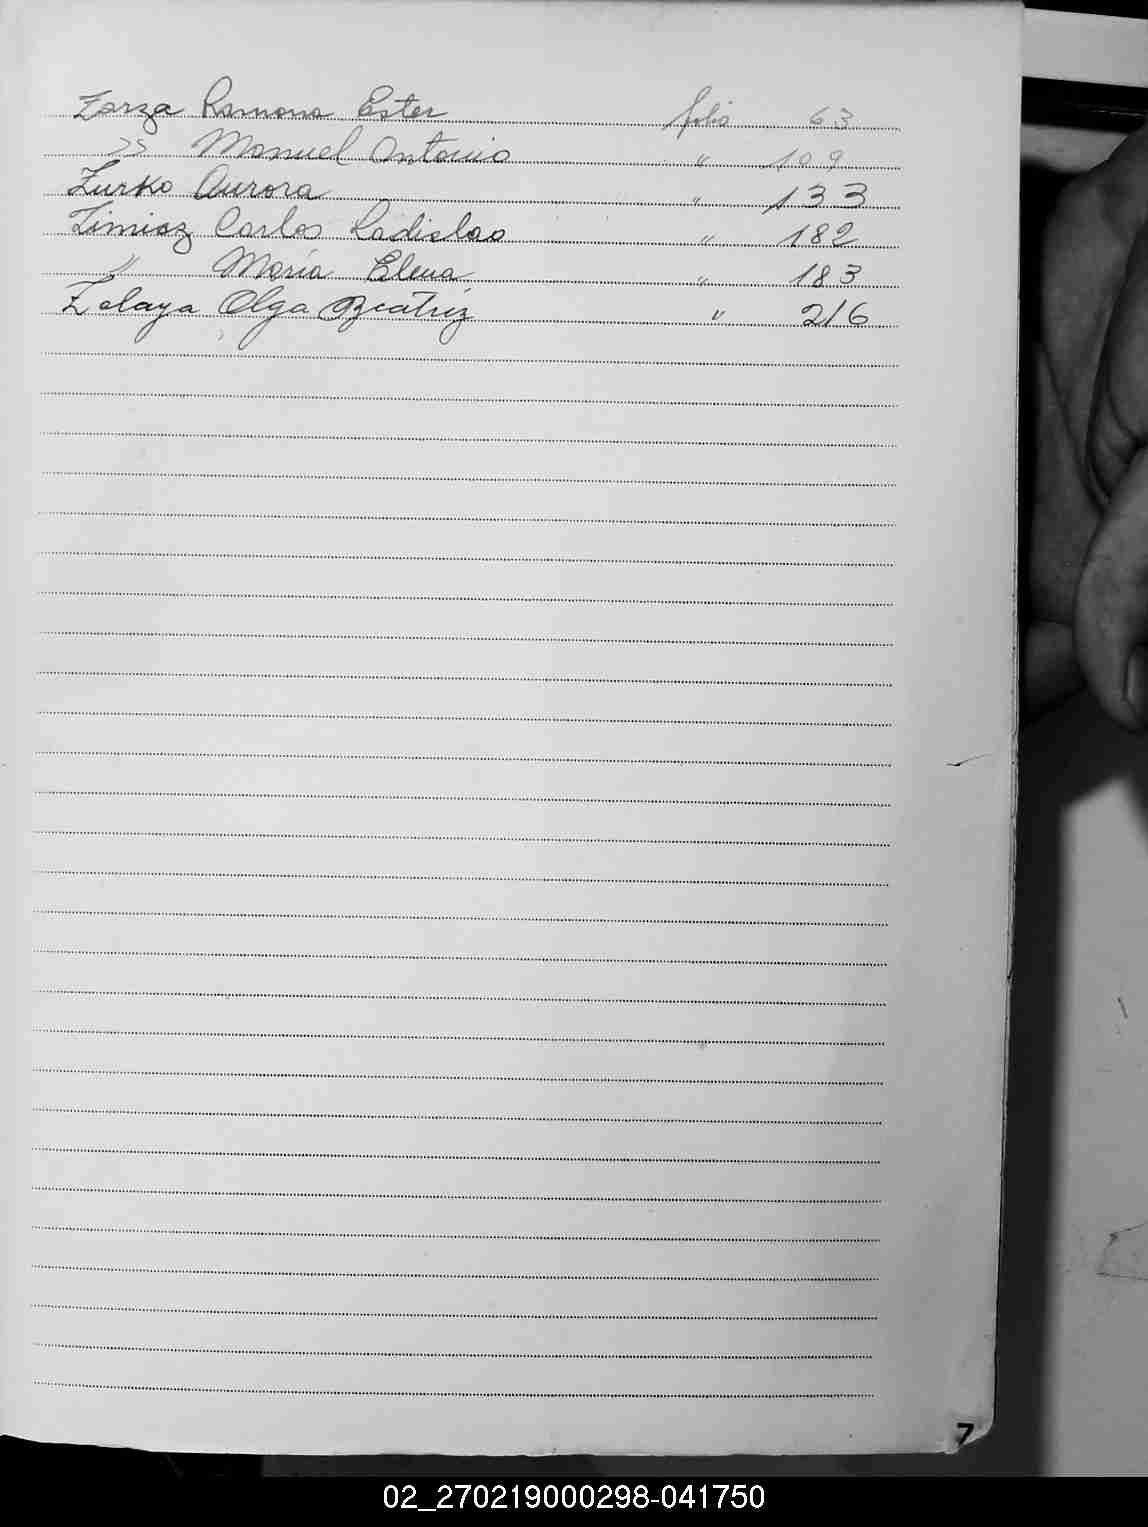 Zarza Ramona Ester folio 63
" Manuel Antonio " 109
Zurko Aurora " 133
Zimisz Carlos Ladislao " 182
" María Elena " 183
Zelaya Olga Beatriz " 216
Z
02_270219000298-041750